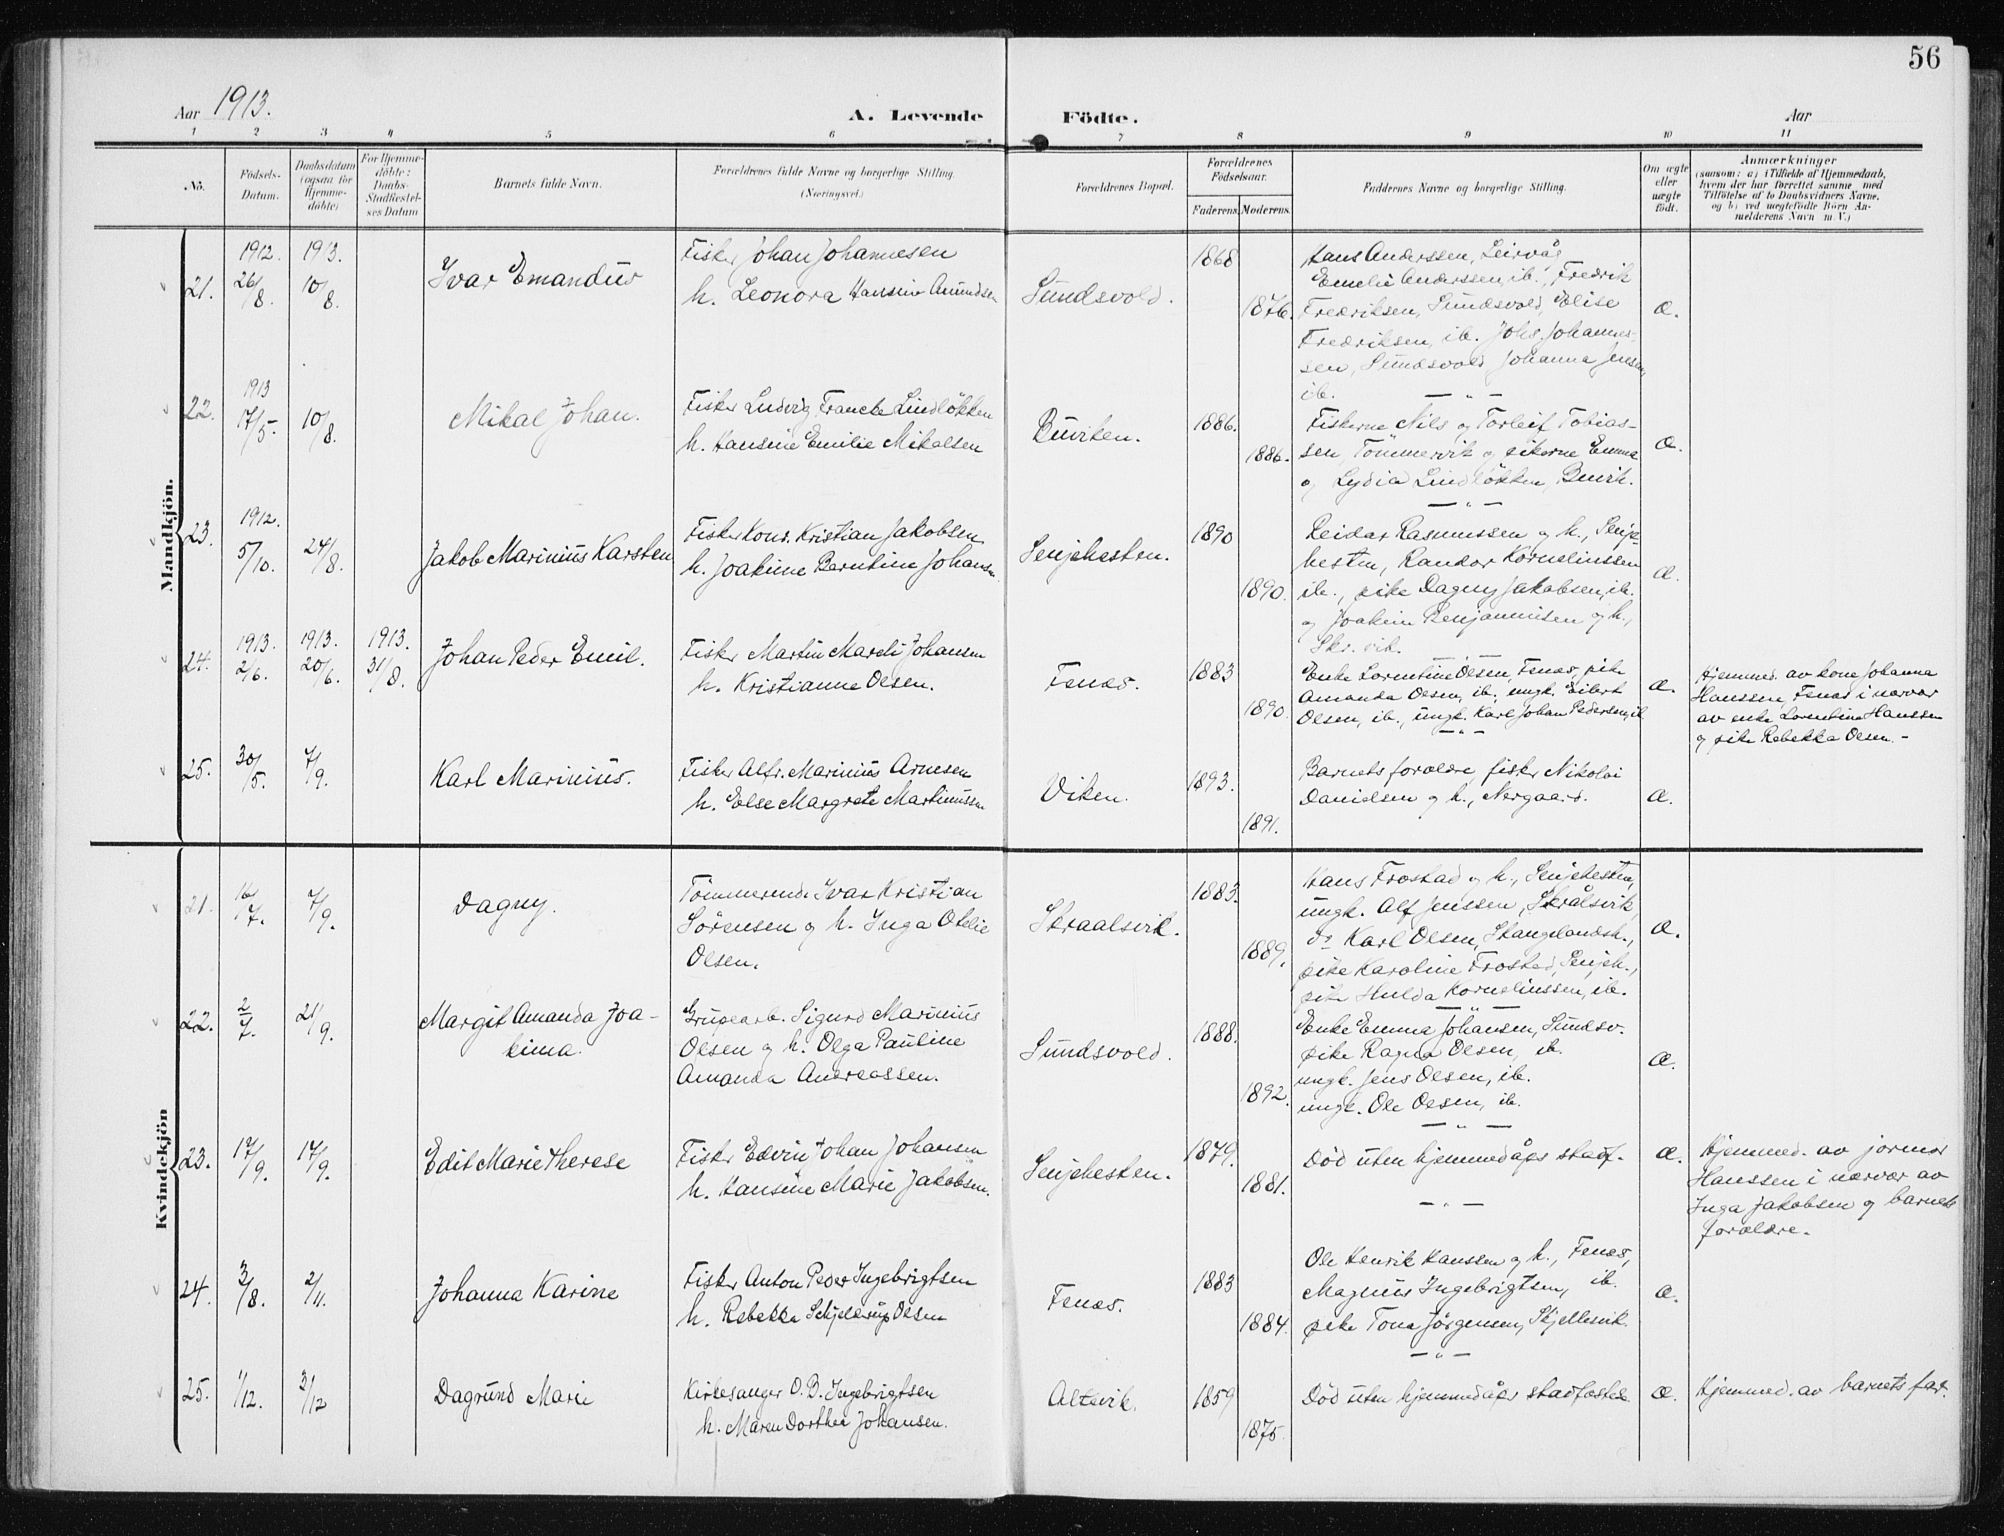 56
Aar 1913.
A. Levende Födte.
Aar
1 2 3 4 5 6 7 8 9 10 11
No.
Födsels-Datum.
Daabsdatum (ogsaa for Hjemme-döbte)
For Hjemme-döbte: Daabs-Stadfæstel-ses Datum
Barnets fulde Navn.
Forældrenes fulde Navne og borgerlige Stilling. (Næringsvei.)
Forældrenes Bopæl.
Forældrenes Födselsaar.
Faderens. Moderens.
Faddernes Navne og borgerlige Stilling.
Om ægte eller uægte födt.
Anmærkninger
(saasom: a) i Tilfælde af Hjemmedaab,
hvem der har forrettet samme med
Tilföielse af to Daabsvidners Navne,
og b) ved uægtefödte Börn An-
melderens Navn m. V.)
Mandkjön.
21.
1912. 26/8.
1913. 10/8.
Ivar Emandus
Fisker Johan Johannesen
h. Leonora Hansine Amundsen
Sundsvold.
1868
1876.
Hans Anderssen, Leirvåg
Emelie Anderssen, ib., Fredrik
Fredriksen, Sundsvold, Elise
Fredriksen, ib. Johs. Johannes-
sen, Sundsvold Johanna Jensen,
ib.
æ.
22.
1913 17/5.
10/8.
Mikal Johan.
Fisker Ludvig Francke Lindløkken
h. Hansine Emilie Mikalsen
Buviken.
1886.
1886.
Fiskerne Nils og Torleif Tobias-
sen, Tömmervik og pikerne Emma
og Lydia Lindløkken, Buvik.
æ.
23.
1912. 5/10.
24/8.
Jakob Marinius Karsten
Fisker Kons. Kristian Jakobsen
h. Joakime Berntine Johansen.
Senjehesten.
1890
1890.
Reidar Rasmussen og h., Senje-
hesten, Randor Korneliussen
ib., pike Dagny Jakobsen, ib.
og Joakim Benjaminsen og h.,
Skr. vik.
æ.
24.
1913. 2/6.
1913. 20/6.
1913. 31/8.
Johan Peder Emil.
Fisker Martin Mareli Johansen
h. Kristianne Olsen.
Fenes.
1883
1890.
Enke Lorentine Olsen, Fenes, pike
Amanda Olsen, ib., ungk. Eilert
Olsen, ib., ungk. Karl Johan Pedersen, ib
æ.
Hjemmed. av kone Johanna
Hanssen, Fenes i nærvær
av enke Lorentine Hanssen
og pike Rebekka Olsen.-
25.
30/5.
7/9.
Karl Marinius.
Fisker Alfr. Marinius Arnesen
h. Else Margrete Martinussen
Viken.
1893.
1891.
Barnets forældre, fisker Nikolai
Danielsen og h., Nergaard.
æ.
Kvindekjön
21.
16/7.
7/9.
Dagny.
Tömmermd. Ivar Kristian
Sörensen og h. Inga Otelie
Olsen.
Skraalsvik.
1883.
1889.
Hans Frostad og h., Senjehesten,
ungk. Alf Jenssen, Skrålsvik,
do Karl Olsen, Stangelandsh.,
pike Karoline Frostad, Senjeh.,
pike Hulda Korneliussen, ib.
æ.
22.
2/7.
21/9.
Margit Amanda Joa-
kima.
Grubearb. Sigurd Marinius
Olsen og h. Olga Pauline
Amanda Andreassen.
Sundsvold.
1888.
1892.
Enke Emma Johansen, Sundsv.
pike Ragna Olsen, ib.
ungk. Jens Olsen, ib.
ungk. Ole Olsen, ib.
æ.
23.
17/9.
17/9.
Edit Marie Therese
Fisker Edvin Johan Johansen
h. Hansine Marie Jakobsen.
Senjehesten.
1879.
1881.
Død uten hjemmedåps stadf.
æ.
Hjemmed. av jormor
Hanssen i nærvær av
Inga Jakobsen og barnets
forældre.
24.
3/8.
2/11.
Johanna Karine
Fisker Anton Peder Ingebrigtsen
h. Rebekka Schjelderup Olsen
Fenes.
1883
1884.
Ole Henrik Hanssen og h., Fenes,
Magnus Ingebrigtsen, ib.
pike Tona Jörgensen, Skjellesvik.
æ.
25.
1/12.
3/12
Dagrund Marie
Kirkesanger O. B. Ingebrigtsen
h. Maren Dorthea Johansen.
Altevik.
1859
1875.
Död uten hjemmedåps stadfæstelse
æ.
Hjemmed. av barnets far.